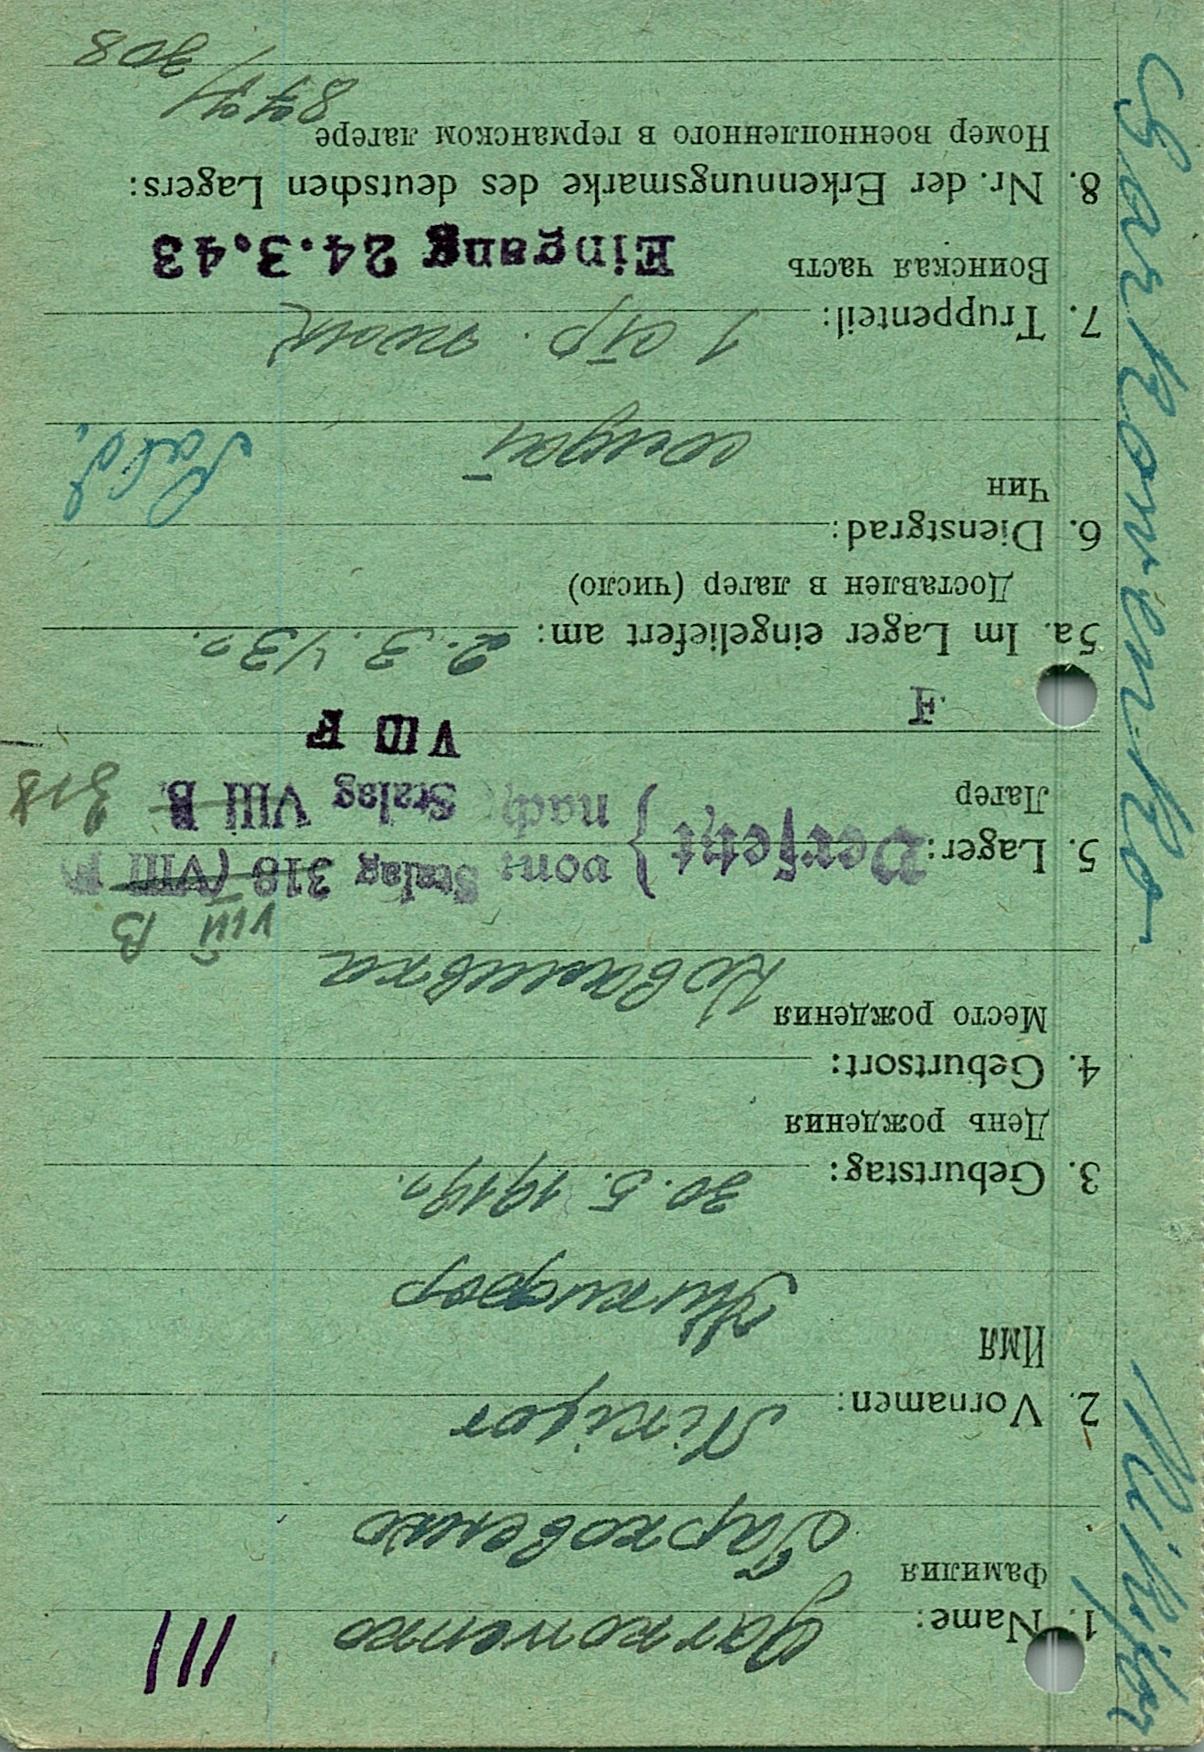 Garkowenko Nikifor
III
1. Name: Garkowenko
Фамилия Гарковенко
2. Vornamen: Nikifor
Имя Никифор
3. Geburtstag: 30. 5. 1919 г.
День рождения
4. Geburtsort:
Место рождения Ковалевка
VIII B
5. Lager: Versetzt } von: Stalag 318 (VIII F
Лагер nach: Stalag VIII B 318
VIII F
F
5a. Im Lager eingeliefert am: 2. 3. 43 г.
Доставлен в лагер (число)
6. Dienstgrad: Sold.
Чин
7. Truppenteil: 1 стр. полк
Воинская часть Eingang 24.3.43
8. Nr. der Erkennungsmarke des deutschen Lagers:
Номер военнопленного в германском лагере
308